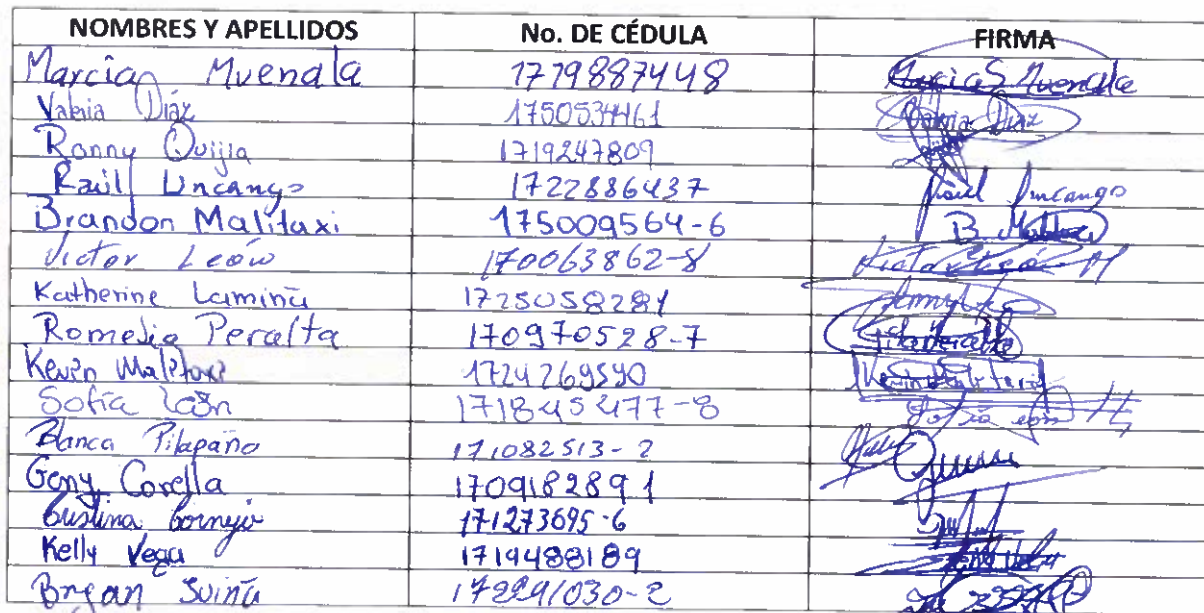 NOMBRES Y APELLIDOS No. DE CÉDULA FIRMA
Marcia Muenala 1719887448 Marcia S. Muenala
Valeria Díaz 1750534461 Valeria Díaz
Ronny Quijia 1719247809
Raúl Uncango 1722886437 Raúl Uncango
Brandon Malitaxi 175009564-6 B. Malitaxi
Victor León 170063862-8
Katherine Lamiña 1725058281
Romelia Peralta 170970528-7
Kevin Malitaxi 1724269590 Kevin Malitaxi
Sofía León 171845477-8 Sofía León
Blanca Pilapaño 171082513-2
Geny Corella 1709182891
Cristina Cornejo 171273695-6
Kelly Vega 1719488189
Bryan Suiña 172291030-2